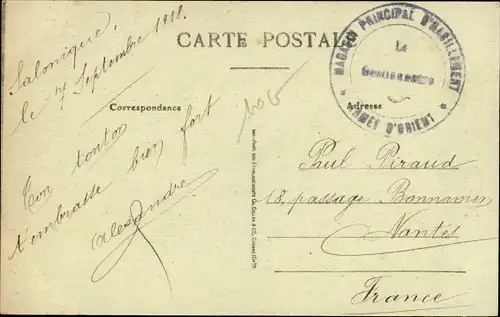 Salonique,
le 7 Septembre 1918.
CARTE POSTALE
MAGASIN PRINCIPAL D'HABILLEMENT
Le
Gestionnaire
* ARMEE D'ORIENT *
Correspondance
Adresse
Ton tonton
t'embrasse bien fort
Alexandre
Paul Piraud
18, passage Bonnamen
Nantes
France